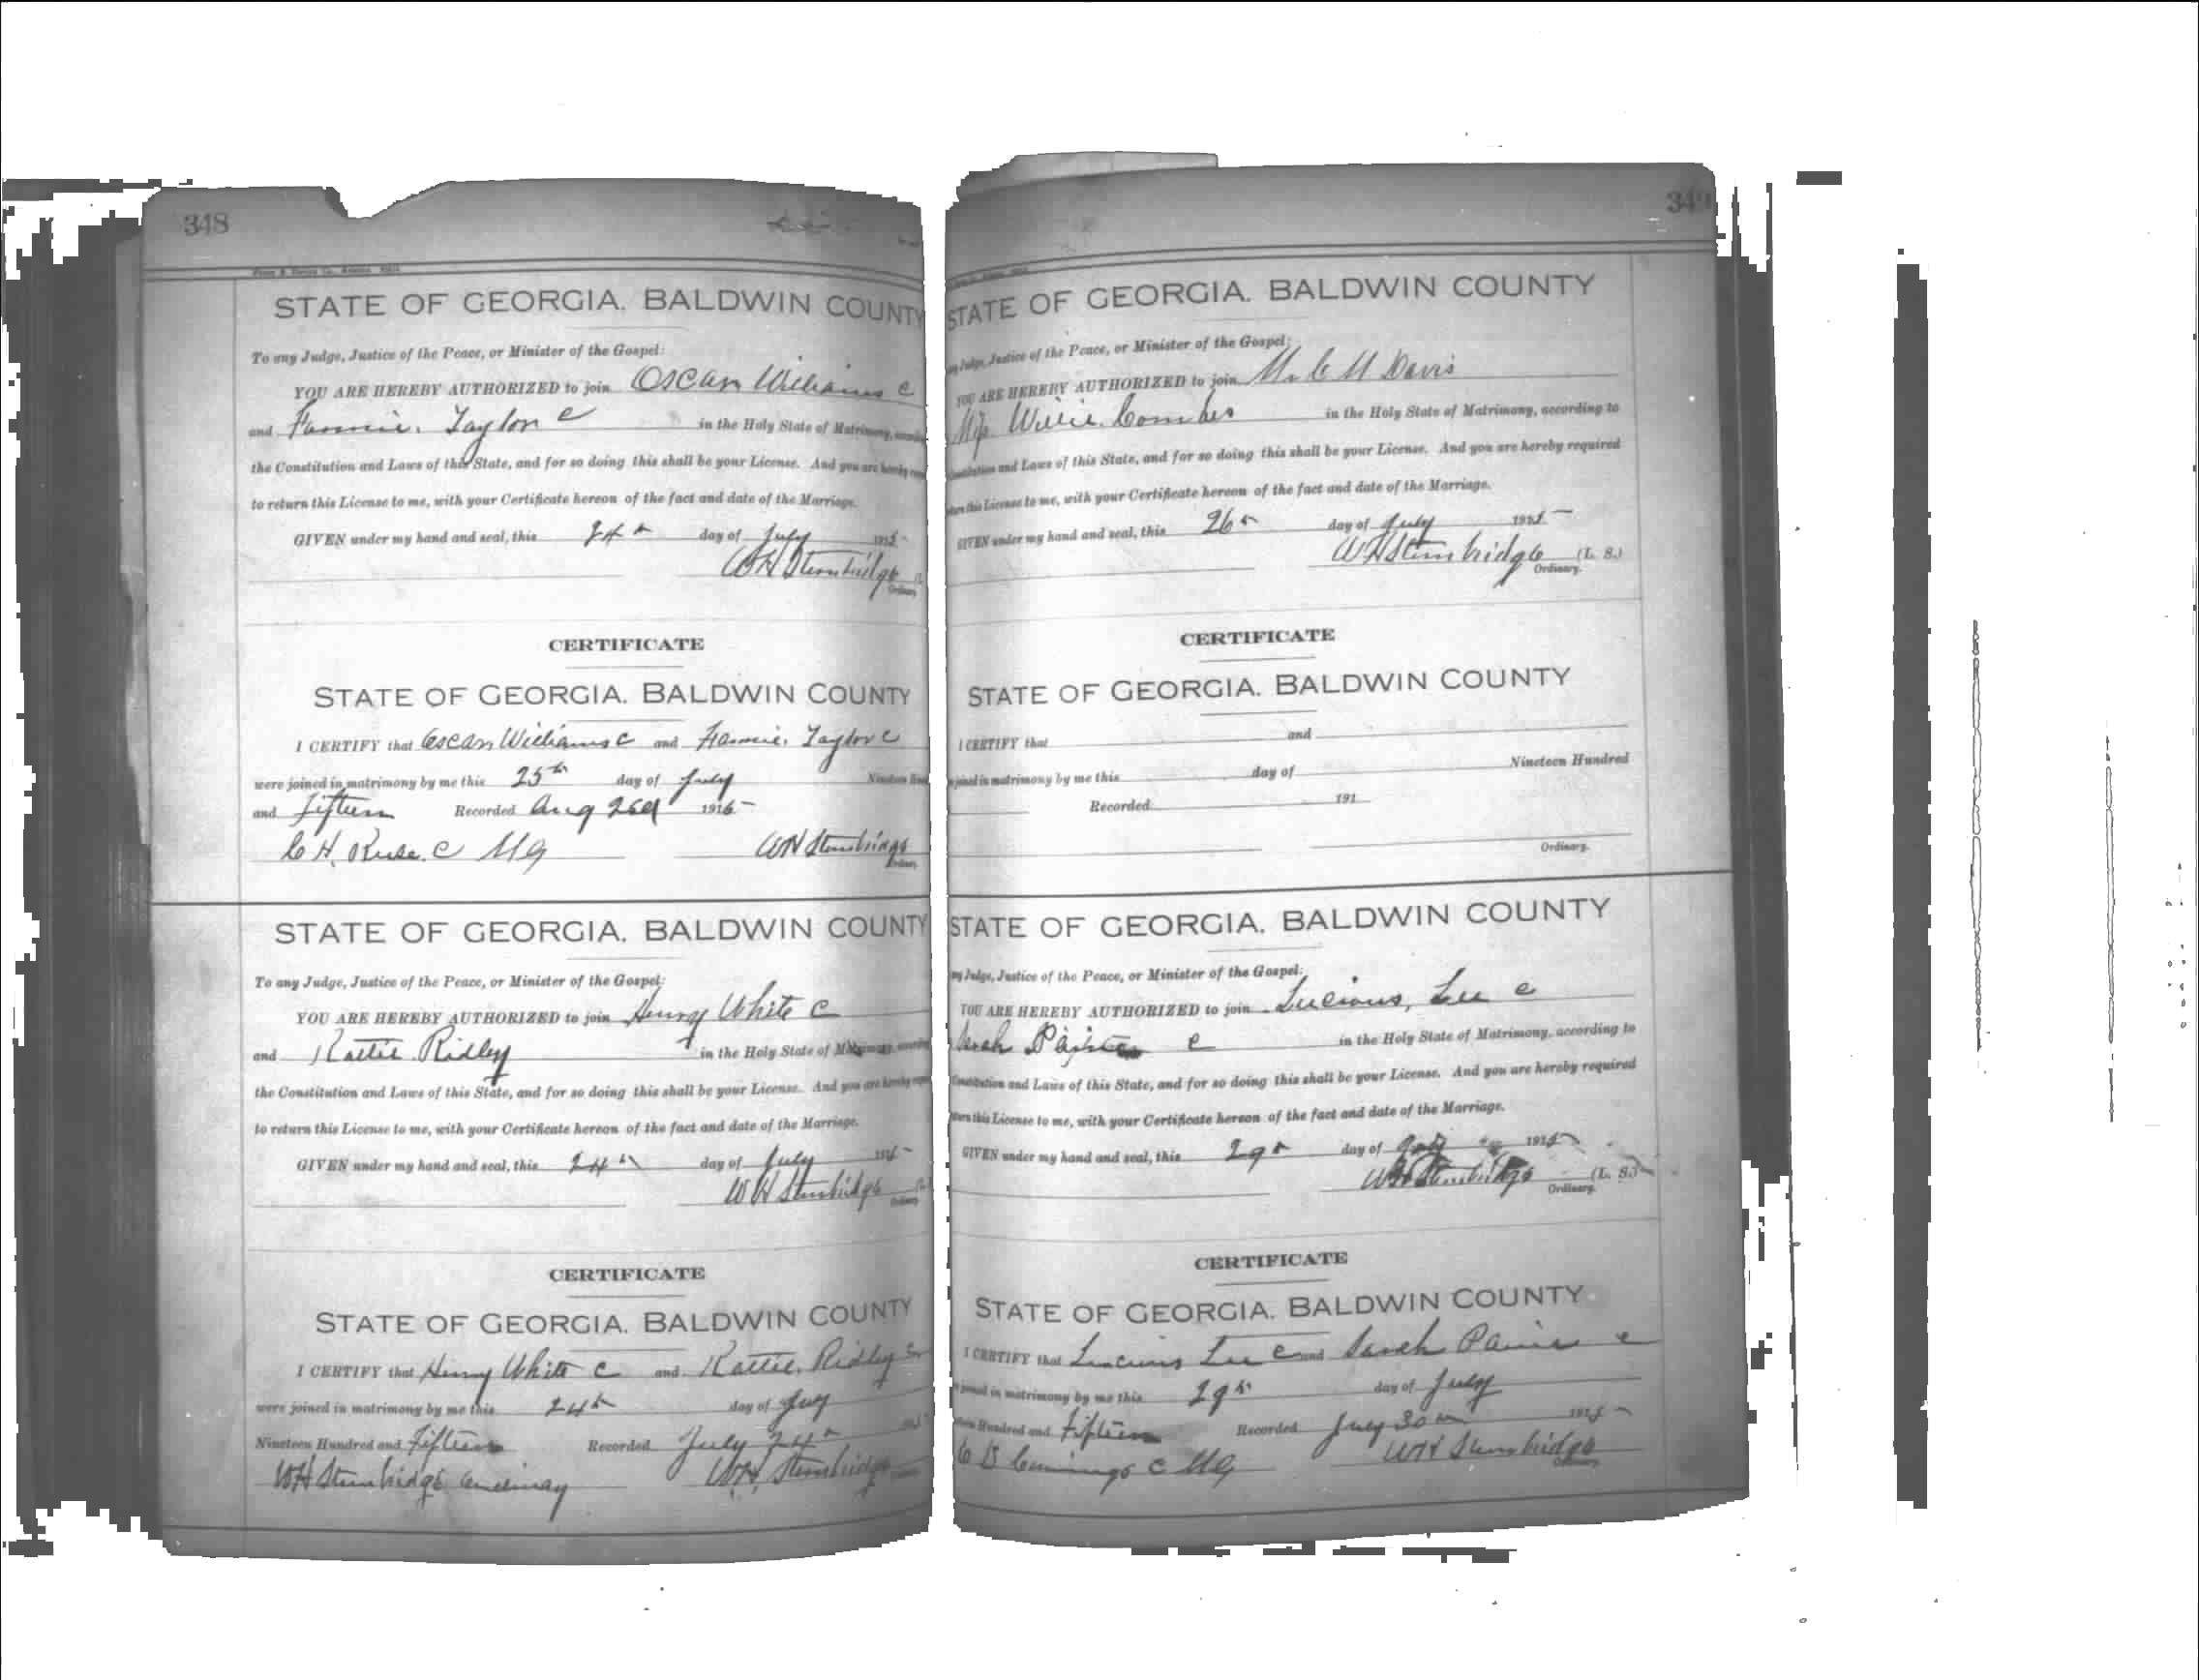 348
STATE OF GEORGIA. BALDWIN COUNTY
To any Judge, Justice of the Peace, or Minister of the Gospel:
YOU ARE HEREBY AUTHORIZED to join Oscar Williams c
and Fannie. Taylor c in the Holy State of Matrimony,
the Constitution and Laws of this State, and for so doing this shall be your License. And you are hereby
to return this License to me, with your Certificate hereon of the fact and date of the Marriage.
GIVEN under my hand and seal, this 24th day of July 1915
WH Stembridge
Ordinary
CERTIFICATE
STATE OF GEORGIA. BALDWIN COUNTY
I CERTIFY that Oscar Williams c and Fannie. Taylor c
were joined in matrimony by me this 25th day of July Nineteen
and Fifteen Recorded Aug 1915
C H. c MG WH Stembridge
Ordinary
STATE OF GEORGIA. BALDWIN COUNTY
To any Judge, Justice of the Peace, or Minister of the Gospel:
YOU ARE HEREBY AUTHORIZED to join Henry White c
and Kattie Ridley in the Holy State of Matrimony,
the Constitution and Laws of this State, and for so doing this shall be your License. And you are hereby
to return this License to me, with your Certificate hereon of the fact and date of the Marriage.
GIVEN under my hand and seal, this 24th day of July 1915
WH Stembridge
Ordinary
CERTIFICATE
STATE OF GEORGIA. BALDWIN COUNTY
I CERTIFY that Henry White c and Kattie. Ridley
were joined in matrimony by me this 24th day of July
Nineteen Hundred and Fifteen Recorded July 24th
WH Stembridge Ordinary WH Stembridge
349
STATE OF GEORGIA. BALDWIN COUNTY
Judge, Justice of the Peace, or Minister of the Gospel:
YOU ARE HEREBY AUTHORIZED to join Mr C M Davis
Miss Willie Combs in the Holy State of Matrimony, according to
and Laws of this State, and for so doing this shall be your License. And you are hereby required
this License to me, with your Certificate hereon of the fact and date of the Marriage.
GIVEN under my hand and seal, this 26th day of July 1915
WH Stembridge (L. S.)
Ordinary.
CERTIFICATE
STATE OF GEORGIA. BALDWIN COUNTY
I CERTIFY that and
joined in matrimony by me this day of Nineteen Hundred
Recorded 191
Ordinary.
STATE OF GEORGIA. BALDWIN COUNTY
Judge, Justice of the Peace, or Minister of the Gospel:
YOU ARE HEREBY AUTHORIZED to join Lucious, Lee c
Sarah c in the Holy State of Matrimony, according to
Constitution and Laws of this State, and for so doing this shall be your License. And you are hereby required
this License to me, with your Certificate hereon of the fact and date of the Marriage.
GIVEN under my hand and seal, this 29th day of July 1915
WH Stembridge (L. S.)
Ordinary.
CERTIFICATE
STATE OF GEORGIA. BALDWIN COUNTY
I CERTIFY that Lucious Lee c and Sarah c
joined in matrimony by me this 29th day of July
Hundred and Fifteen Recorded July 30th 1915
C D Cummings c MG WH Stembridge